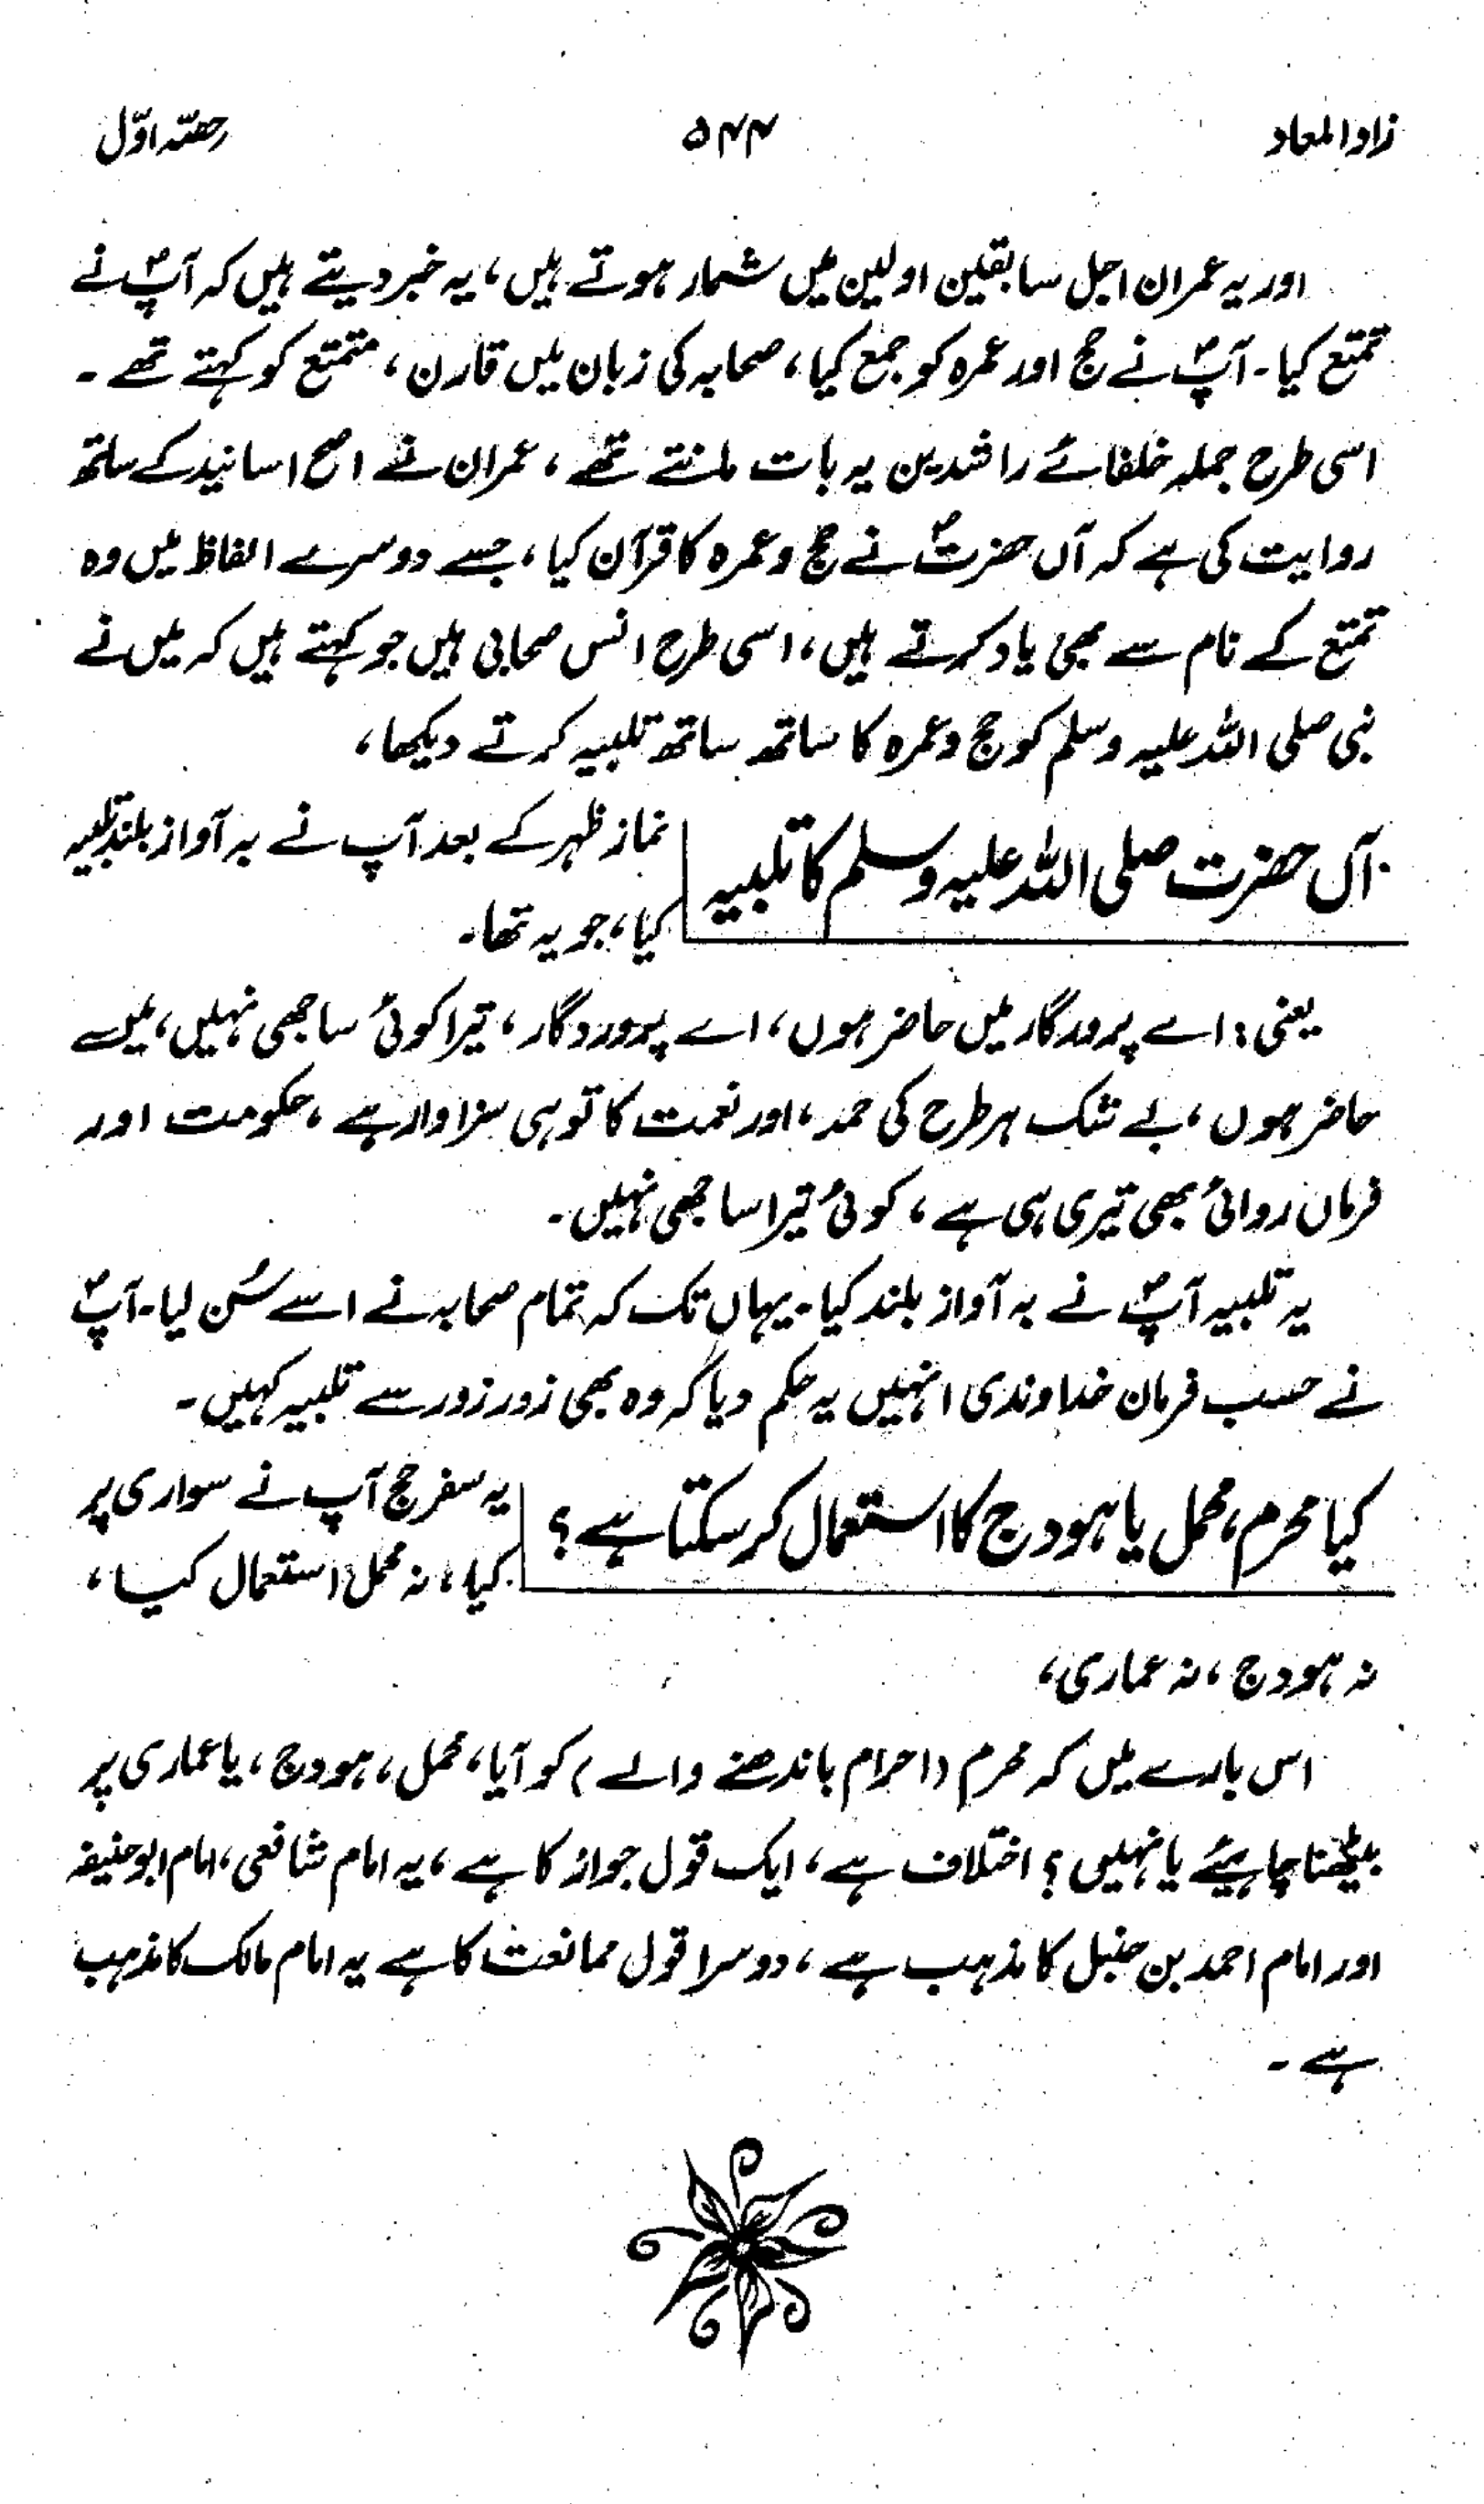 زاد المعاد ۵۴۴ حصّہ اوّل
اور یہ عمران اجل سابقین اولین میں شمار ہوتے ہیں، یہ خبر دیتے ہیں کہ آپؐ نے
تمتع کیا۔ آپؐ نے حج اور عمرہ کو جمع کیا، صحابہ کی زبان میں قارن، متمتع کو کہتے تھے۔
اسی طرح جملہ خلفائے راشدین یہ بات مانتے تھے، عمران نے اصح اسانید کے ساتھ
روایت کی ہے کہ آں حضرتؐ نے حج و عمرہ کا قرآن کیا، جسے دوسرے الفاظ میں وہ
تمتع کے نام سے بھی یاد کرتے ہیں، اسی طرح انس صحابی ہیں جو کہتے ہیں کہ میں نے
نبی صلی اللہ علیہ وسلم کو حج و عمرہ کا ساتھ ساتھ تلبیہ کرتے دیکھا،
آں حضرت صلی اللہ علیہ وسلم کا تلبیہ
نماز ظہر کے بعد آپ نے بہ آواز بلند تلبیہ
کیا، جو یہ تھا۔
یعنی: اے پرورگار میں حاضر ہوں، اے پروردگار، تیرا کوئی ساجھی نہیں، میں
حاضر ہوں، بے شک ہر طرح کی حمد، اور نعمت کا تو ہی سزاوار ہے، حکومت اور
فرماں روائی بھی تیری ہی ہے، کوئی تیرا ساجھی نہیں۔
یہ تلبیہ آپؐ نے بہ آواز بلند کیا۔ یہاں تک کہ تمام صحابہ نے اسے سُن لیا۔ آپؐ
نے حسب فرمان خداوندی انہیں یہ حکم دیا کہ وہ بھی زور زور سے تلبیہ کہیں۔
کیا محرم، محمل یا ہودج کا استعمال کر سکتا ہے؟
یہ سفر حج آپ نے سواری پر
کیا، نہ محمل استعمال کیا،
نہ ہودج، نہ عماری،
اس بارے میں کہ محرم (احرام باندھنے والے) کو آیا، محمل، ہودج، یا عماری پر
بیٹھنا چاہیئے یا نہیں؟ اختلاف ہے، ایک قول جواز کا ہے، یہ امام شافعی، امام ابوحنیفہ
اور امام احمد بن حنبل کا مذہب ہے، دوسرا قول ممانعت کا ہے یہ امام مالک کا مذہب
ہے۔